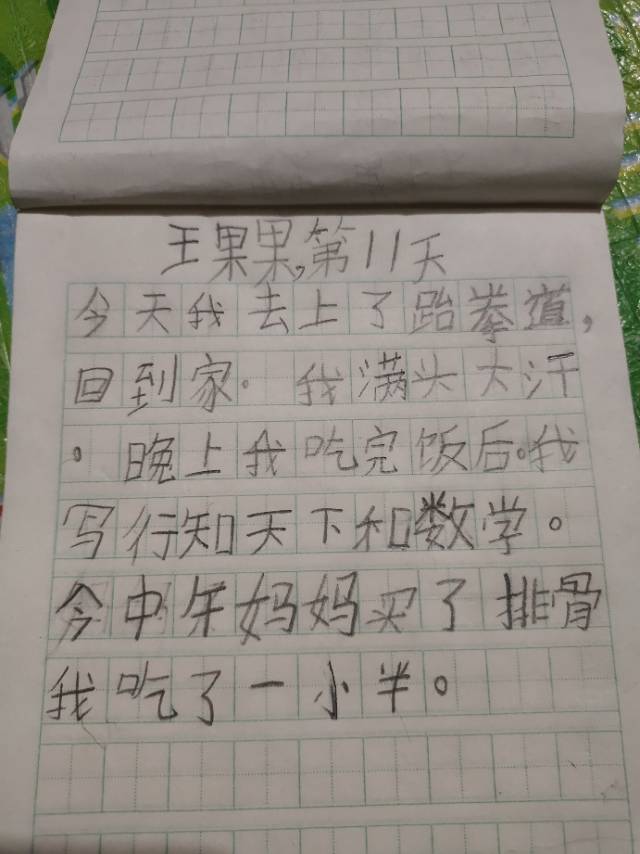 王果果,第11天
今天我去上了跆拳道,
回到家。我满头大汗
。晚上我吃完饭后。我
写行知天下和数学。
今中午妈妈买了排骨
我吃了一小半。